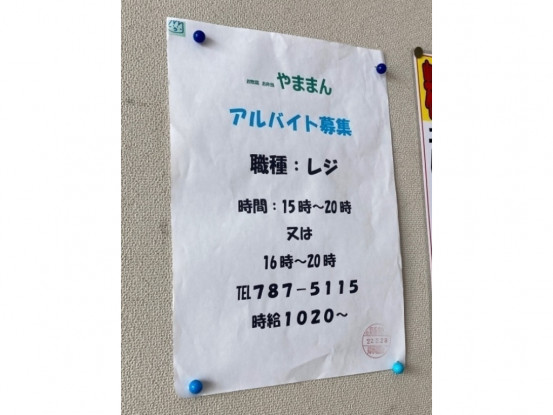 やままん
アルバイト募集
職種：レジ
時間：15時～20時
又は
16時～20時
TEL787－5115
時給1020～